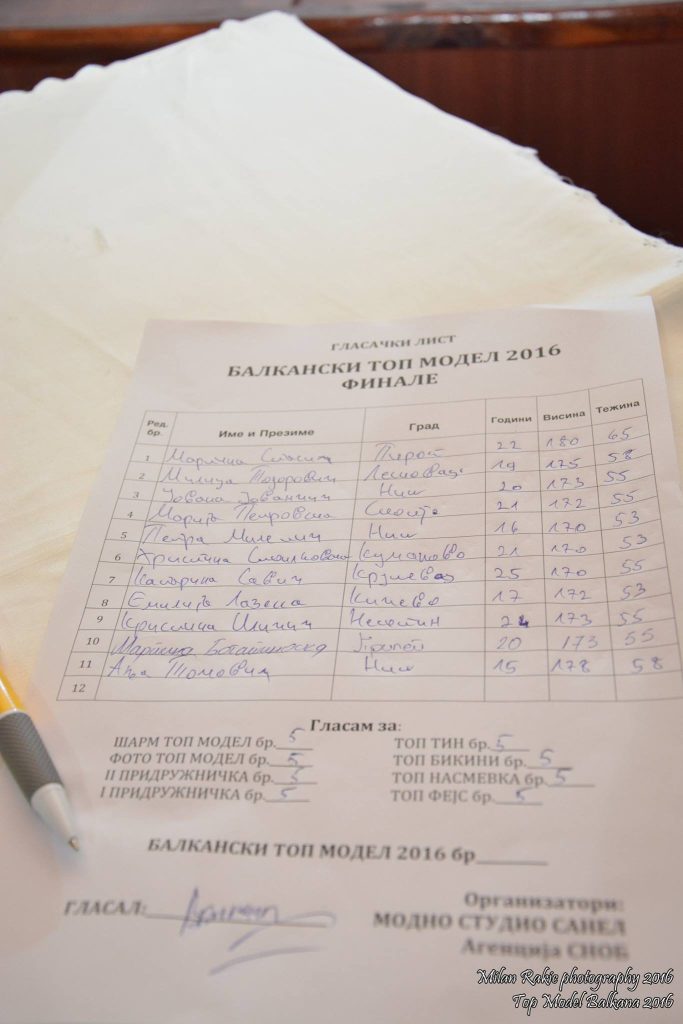 ГЛАСАЧКИ ЛИСТ
БАЛКАНСКИ ТОП МОДЕЛ 2016
ФИНАЛЕ
Ред. бр. Име и Презиме Град Години Висина Тежина
1 Пирот 22 180 65
2 Милица Тодоровић Лесковац 19 175 58
3 Јована Ниш 20 173 55
4 Марија Петровска 21 172 55
5 Петра Ниш 16 170 53
6 Христина Куманово 21 170 53
7 Катарина Савић Крушевац 25 170 55
8 Емилија Лазеска Кичево 17 172 53
9 Кристина Неготин 173 55
10 Прилеп 20 173 55
11 Ања Томовић Ниш 15 178 58
12
Гласам за:
ШАРМ ТОП МОДЕЛ бр. 5 ТОП ТИН бр. 5
ФОТО ТОП МОДЕЛ бр. 5 ТОП БИКИНИ бр. 5
II ПРИДРУЖНИЧКА бр. 5 ТОП НАСМЕВКА бр. 5
I ПРИДРУЖНИЧКА бр. 5 ТОП ФЕЈС бр. 5
БАЛКАНСКИ ТОП МОДЕЛ 2016 бр
ГЛАСАЛ:
Организатори:
МОДНО СТУДИО САНЕЛ
Агенција СНОБ
Milan Rakic photography 2016
Top Model Balkana 2016